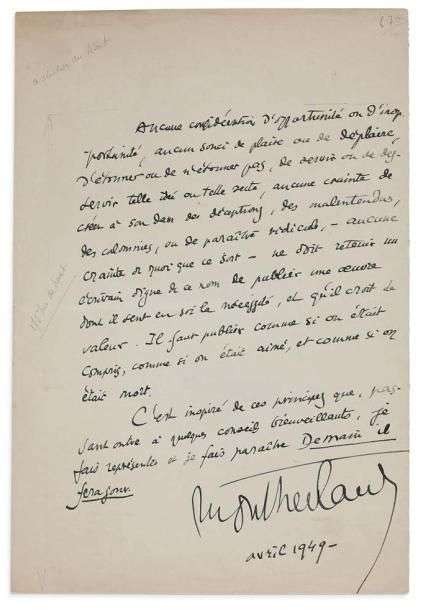 Aucune considération d'opportunité ou d'inop-
portunité, aucun souci de plaire ou de déplaire,
d'étonner ou de n'étonner pas, de servir ou de des-
servir telle idée ou telle secte, aucune crainte de
créer à son dam des déceptions, des malentendus,
des calomnies, ou de paraître ridicule, – aucune
crainte de quoi que ce soit – ne doit retenir un
écrivain digne de ce nom de publier une œuvre
dont il sent en soi la nécessité, et qu'il croit de
valeur. Il faut publier comme si on était
compris, comme si on était aimé, et comme si on
était mort.
C'est inspiré de ces principes que, pas-
sant outre à quelques conseils bienveillants, je
fais représenter et je fais paraître Demain il
fera jour.
Montherlant
avril 1949 –